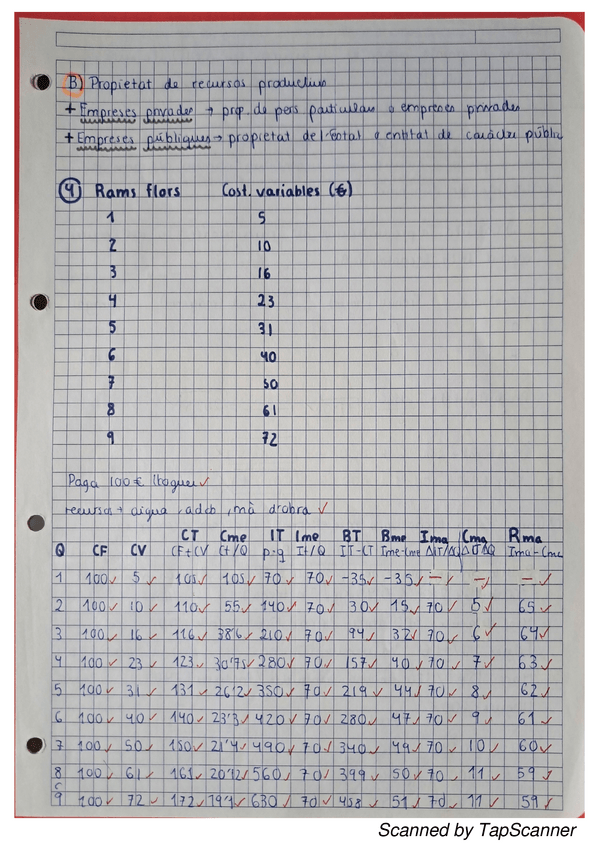 B) Propietat de recursos productius
+ Empreses privades → prop. de pers particulars o empreses privades
+ Empreses públiques → propietat de l'Estat o entitat de caràcter públic
4 Rams flors Cost. variables (€)
1 5
2 10
3 16
4 23
5 31
6 40
7 50
8 61
9 72
Paga 100€ lloguer ✓
recursos + aigua, adob, mà d'obra ✓
CT Cme IT Ime BT Bme Ima Cma Rma
Q CF CV CF+CV Ct/Q p·q It/Q IT-CT Ime-Cme ΔIT/ΔQ ΔCT/ΔQ Ima-Cma
1 100✓ 5✓ 105✓ 105✓ 70✓ 70✓ -35✓ -35✓ -✓ -✓ -✓
2 100✓ 10✓ 110✓ 55✓ 140✓ 70✓ 30✓ 15✓ 70✓ 5✓ 65✓
3 100✓ 16✓ 116✓ 38'6✓ 210✓ 70✓ 94✓ 32✓ 70✓ 6✓ 64✓
4 100✓ 23✓ 123✓ 30'75✓ 280✓ 70✓ 157✓ 40✓ 70✓ 7✓ 63✓
5 100✓ 31✓ 131✓ 26'2✓ 350✓ 70✓ 219✓ 44✓ 70✓ 8✓ 62✓
6 100✓ 40✓ 140✓ 23'3✓ 420✓ 70✓ 280✓ 47✓ 70✓ 9✓ 61✓
7 100✓ 50✓ 150✓ 21'4✓ 490✓ 70✓ 340✓ 49✓ 70✓ 10✓ 60✓
8 100✓ 61✓ 161✓ 20'12✓ 560✓ 70✓ 399✓ 50✓ 70✓ 11✓ 59✓
9 100✓ 72✓ 172✓ 19'1✓ 630✓ 70✓ 458✓ 51✓ 70✓ 11✓ 59✓
Scanned by TapScanner